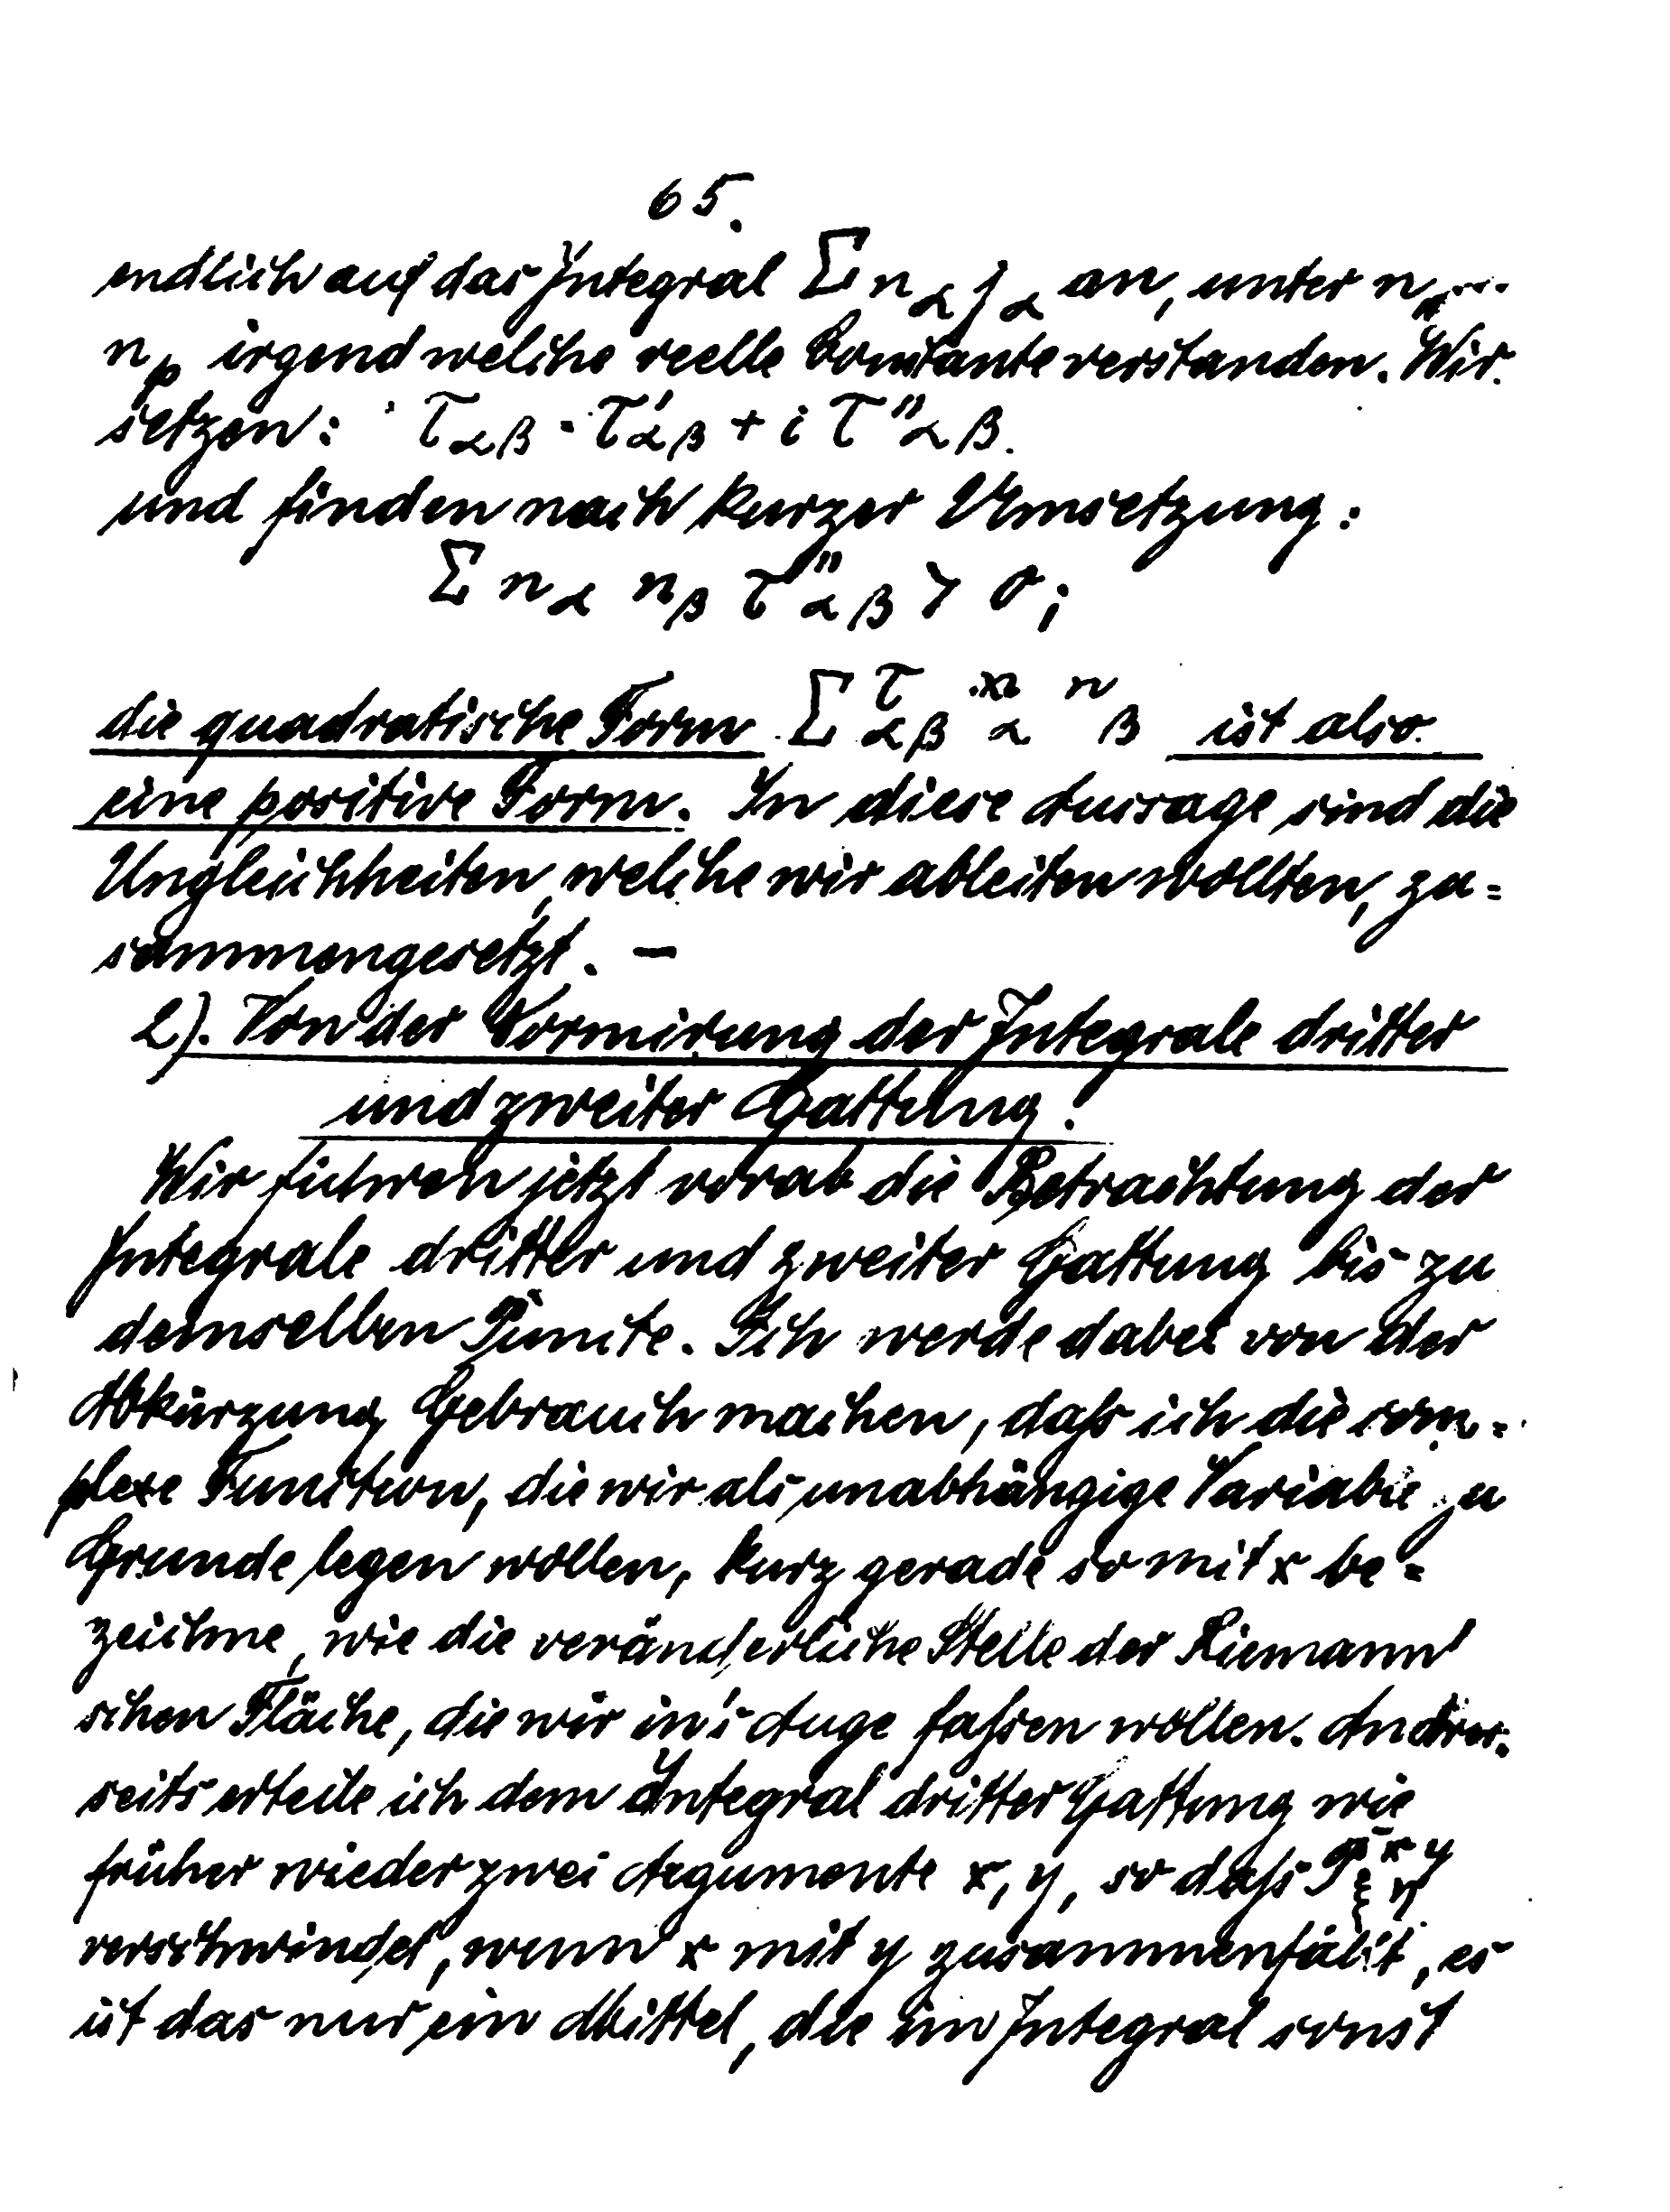 65.
endlich auf das Integral Σ n_α j_α an, unter n_1 ...
n_p irgend welche reelle Constante verstanden. Wir
setzen: τ_αβ = τ'_αβ + i τ''_αβ.
und finden nach kurzer Umsetzung:
Σ n_α n_β τ''_αβ > 0;
die quadratische Form Σ τ_αβ n_α n_β ist also
eine positive Form. In diese Aussage sind die
Ungleichheiten, welche wir ableiten wollten, zu=
sammengesetzt. —
2). Von der Normirung der Integrale dritter
und zweiter Gattung.
Wir führen jetzt vorab die Betrachtung der
Integrale dritter und zweiter Gattung bis zu
demselben Puncte. Ich werde dabei von der
Abkürzung Gebrauch machen, daſs ich die com=
plexe Function, die wir als unabhängige Variable zu
Grunde legen wollen, kurz gerade so mit x be=
zeichne, wie die veränderliche Stelle der Riemann'
schen Fläche, die wir in's Auge faſsen wollen. Andrer=
seits erteile ich dem Integral dritter Gattung wie
früher wieder zwei Argumente x, y, so daſs P^{x y}_{ξ η}
verschwindet, wenn x mit y zusammenfällt, es
ist das nur ein Mittel, die im Integral sonst